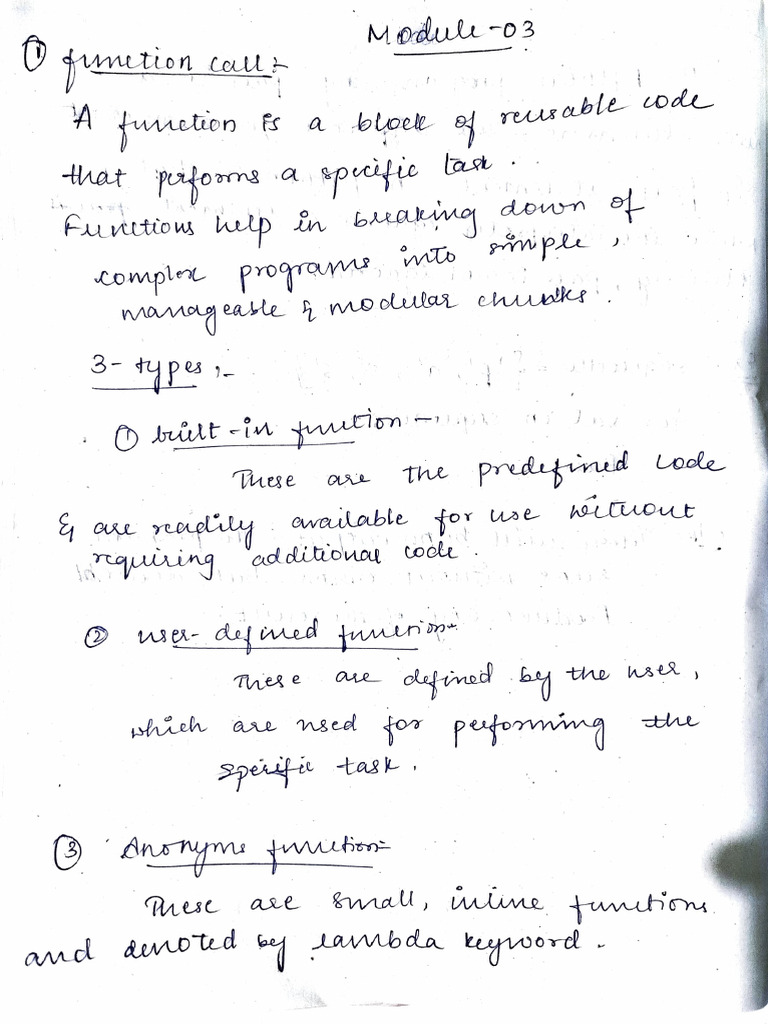 Module-03
① function call:-
A function is a block of reusable code
that performs a specific task.
Functions help in breaking down of
complex programs into simple,
manageable & modular chunks.
3- types:-
① built-in function-
These are the predefined code
& are readily available for use without
requiring additional code.
② user-defined function-
These are defined by the user,
which are used for performing the
specific task.
③ Anonyms function-
These are small, inline functions
and denoted by lambda keyword.